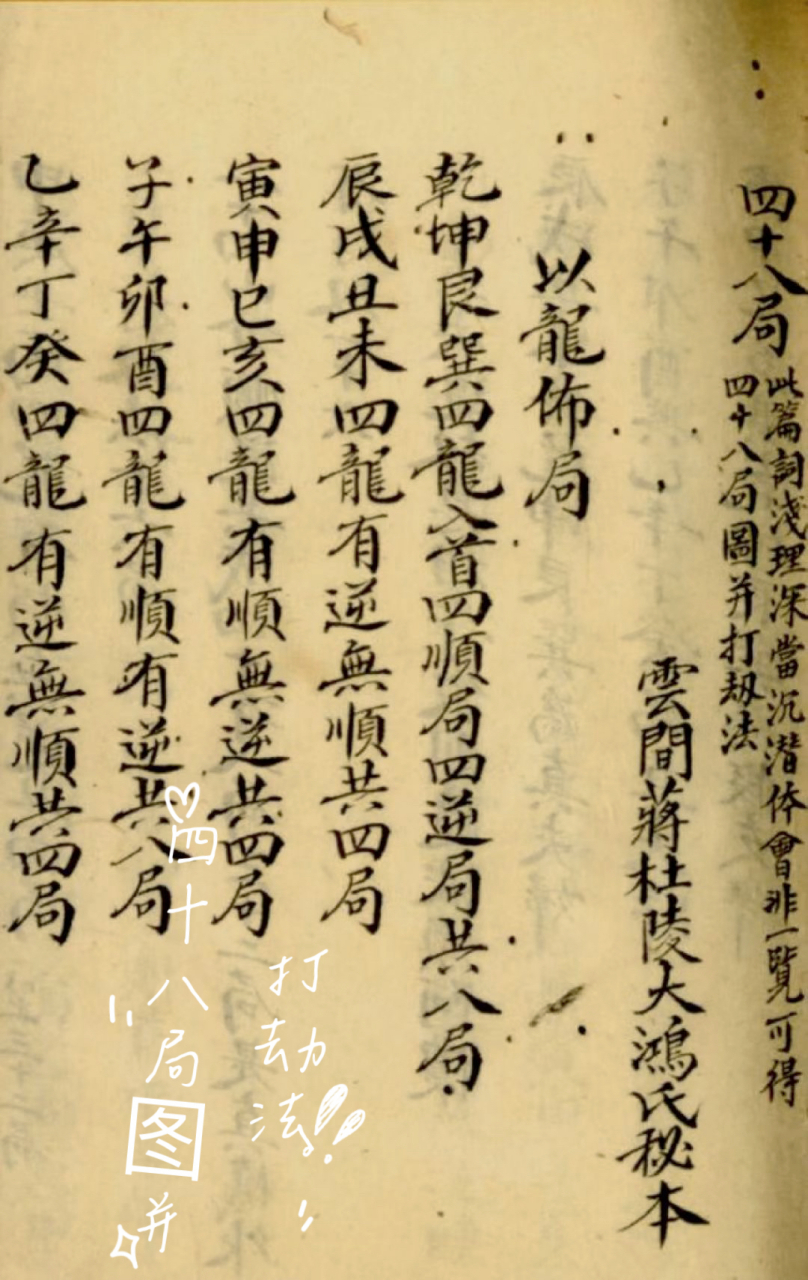 四十八局
此篇詞淺理深當沉潛体會非一覽可得
四十八局圖并打刼法
雲間蔣杜陵大鴻氏秘本
以龍佈局
乾坤艮巽四龍入首四順局四逆局共八局
辰戌丑未四龍有逆無順共四局
寅申巳亥四龍有順無逆共四局
子午卯酉四龍有順有逆共八局
乙辛丁癸四龍有逆無順共四局
打劫法!!
"四十八局图并"